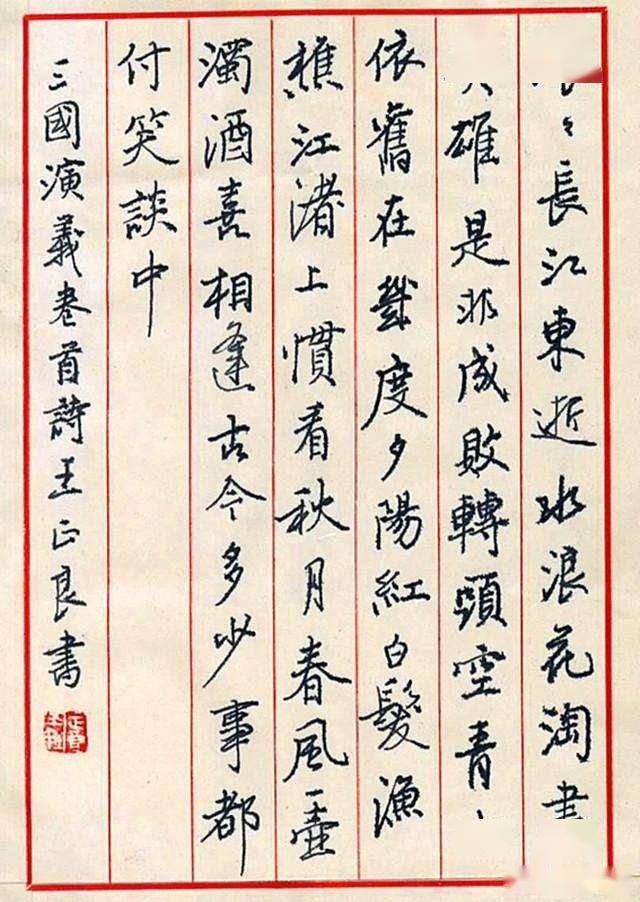 々長江東逝水浪花淘
雄是非成敗轉頭空青
依舊在幾度夕陽紅白髮漁
樵江渚上慣看秋月春風一壺
濁酒喜相逢古今多少事都
付笑談中
三國演義卷首詩王正良書